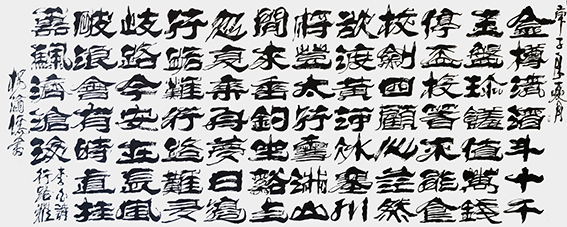 金樽清酒斗十千
玉盤珍饈值萬錢
停盃投箸不能食
拔劍四顧心茫然
欲渡黄河冰塞川
將登太行雪滿山
閒來垂釣坐谿上
忽復乘舟夢日邊
行路難行路難多
岐路今安在長風
破浪會有時直挂
雲帆濟滄海
李白詩
行路難